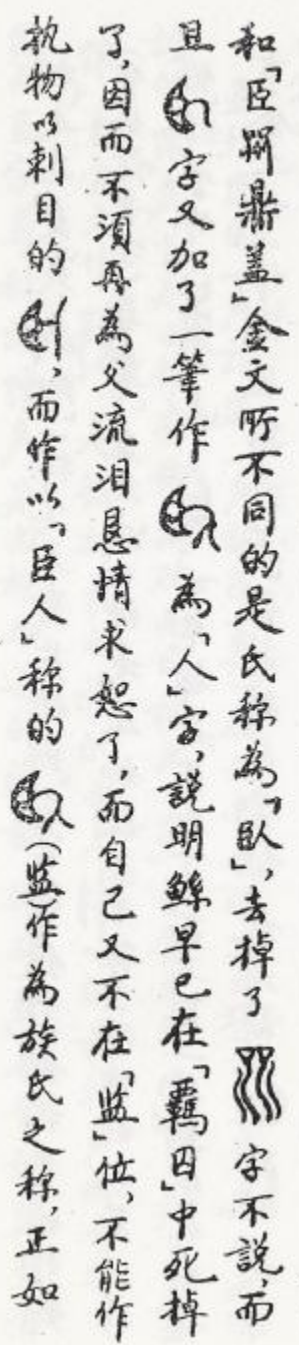 和「臣鼎盖」金文所不同的是氏称為「臥」,去掉了字不説,而
且字又加了一筆作為「人」字,説明鯀早已在「羈囚」中死掉
了,因而不須再為父流泪恳情求恕了,而自己又不在「监」位,不能作
执物以刺目的,而作以「臣人」称的(监)作為族氏之称,正如